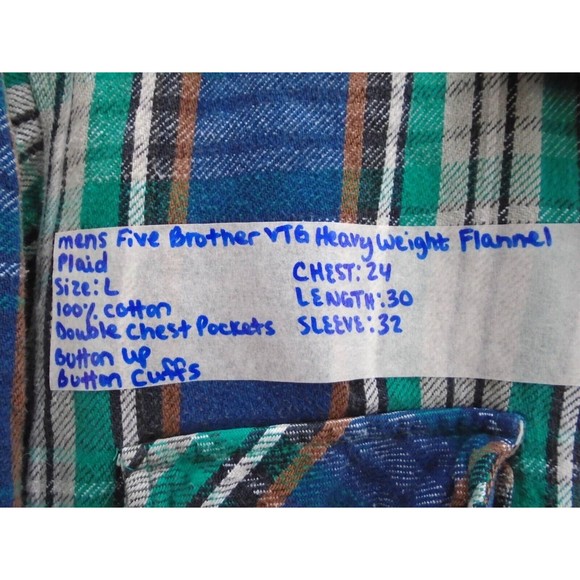 mens Five Brother VTG Heavy Weight Flannel
Plaid
Size: L
100% cotton
Double Chest Pockets
Button Up
Button Cuffs
CHEST: 24
LENGTH: 30
SLEEVE: 32